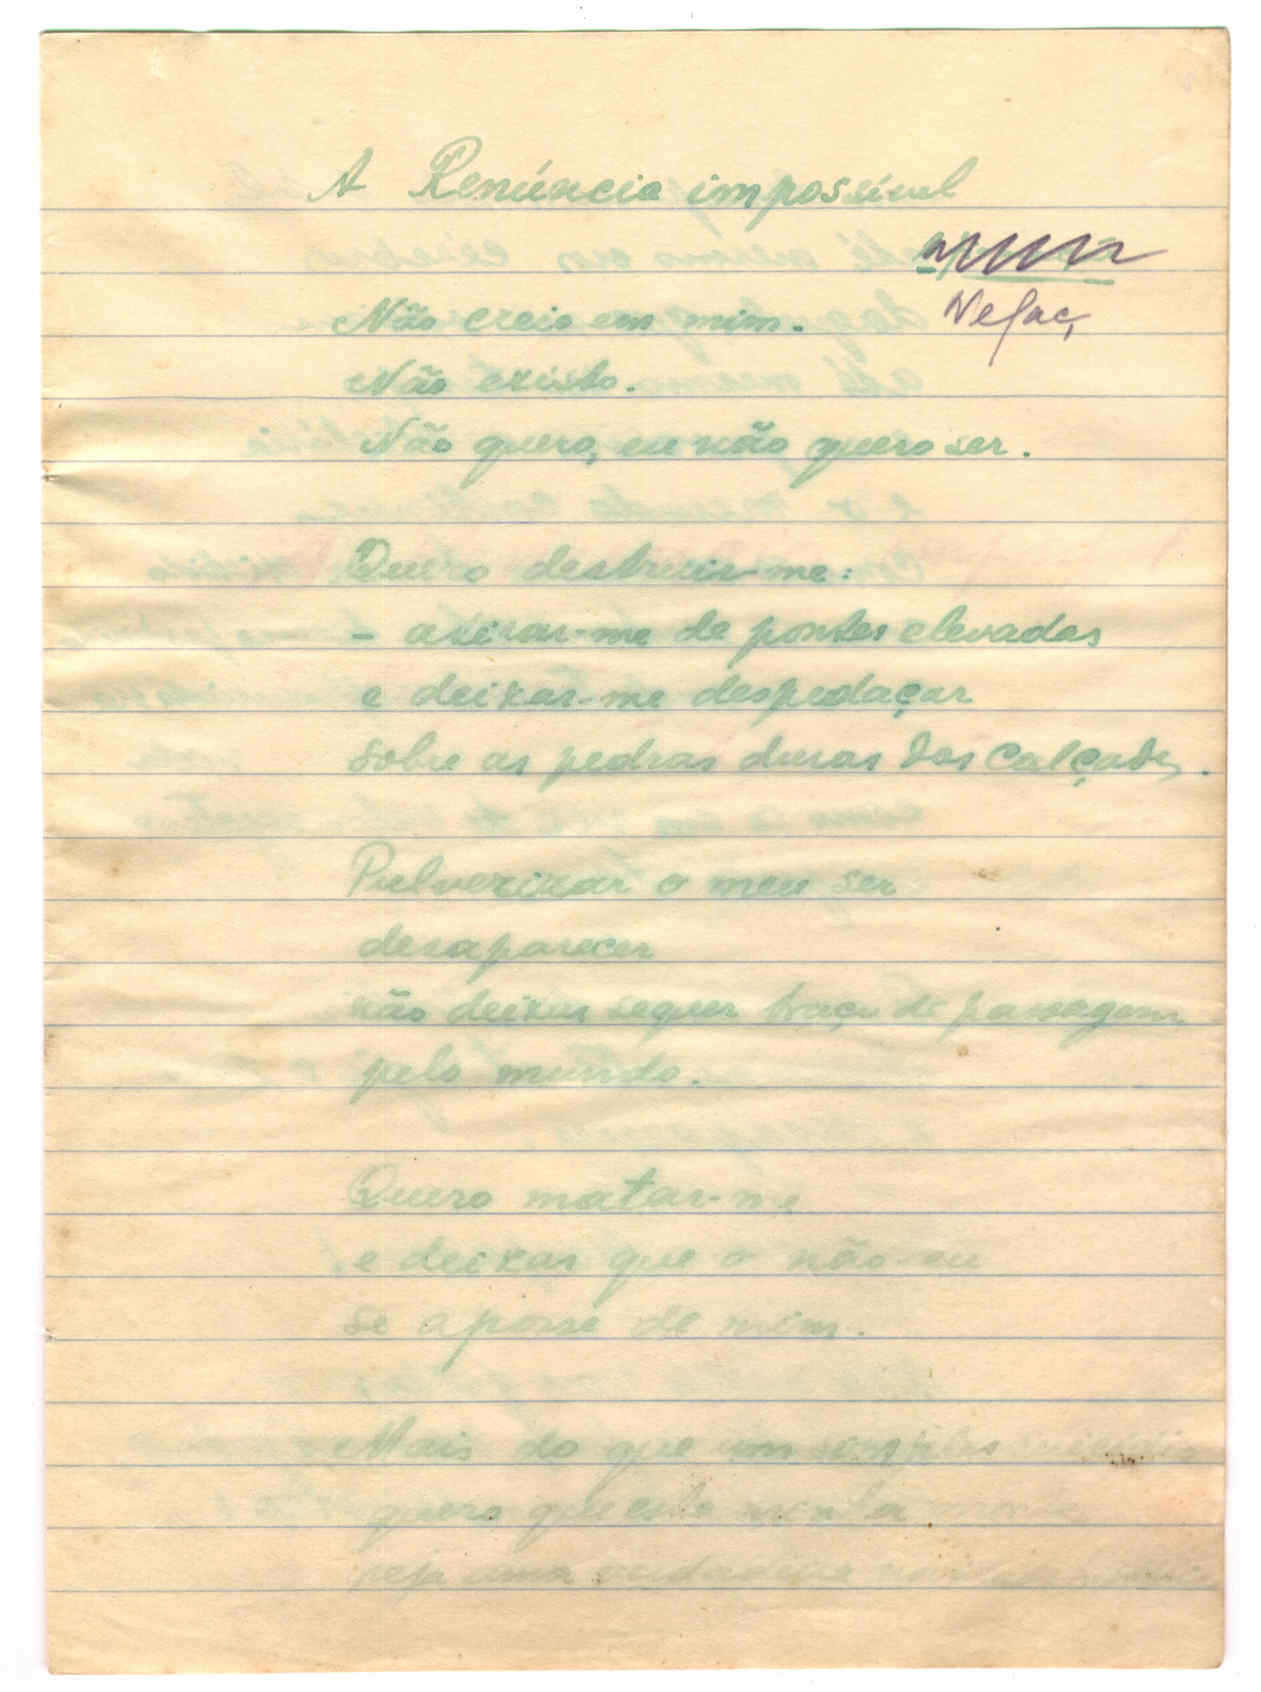 A Renúncia impossível
Negaç
Não creio em mim.
Não existo.
Não quero, eu não quero ser.
Quero destruir-me:
– atirar-me de pontes elevadas
e deixar-me despedaçar
sobre as pedras duras das calçadas.
Pulverizar o meu ser
desaparecer
não deixar sequer traço de passagem
pelo mundo.
Quero matar-me
e deixar que o não-eu
se aposse de mim.
Mais do que um simples suicídio
quero que esta minha morte
seja uma verdadeira novidade